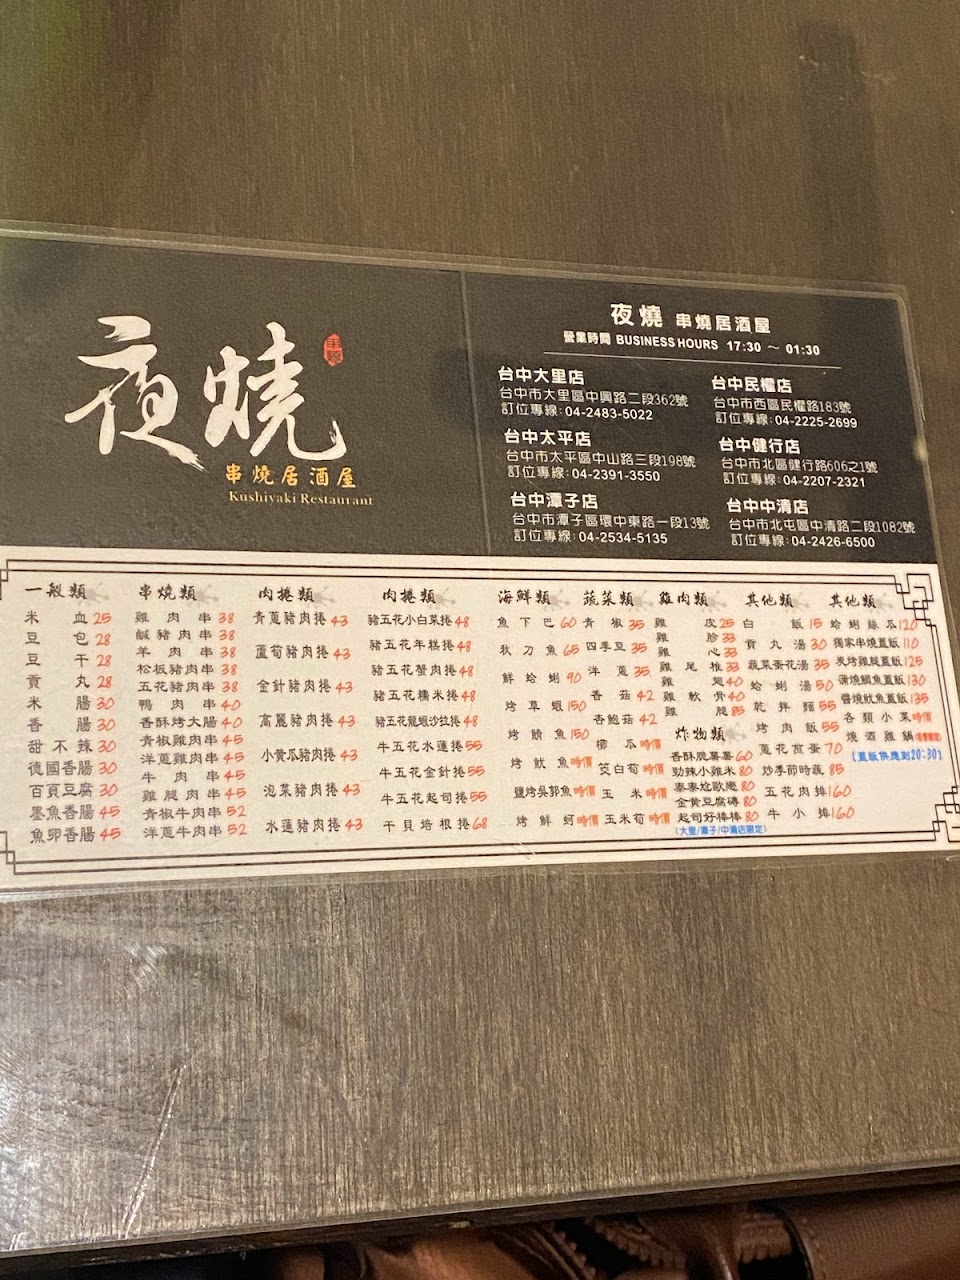 夜燒
串燒
串燒居酒屋
Kushiyaki Restaurant
夜燒 串燒居酒屋
營業時間 BUSINESS HOURS 17:30 ~ 01:30
台中大里店
台中市大里區中興路二段362號
訂位專線:04-2483-5022
台中太平店
台中市太平區中山路三段198號
訂位專線:04-2391-3550
台中潭子店
台中市潭子區環中東路一段13號
訂位專線:04-2534-5135
台中民權店
台中市西區民權路183號
訂位專線:04-2225-2699
台中健行店
台中市北區健行路606之1號
訂位專線:04-2207-2321
台中中清店
台中市北屯區中清路二段1082號
訂位專線:04-2426-6500
一般類
米血 25
豆包 28
豆干 28
貢丸 28
米腸 30
香腸 30
甜不辣 30
德國香腸 30
百頁豆腐 30
墨魚香腸 45
魚卵香腸 45
串燒類
雞肉串 38
鹹豬肉串 38
羊肉串 38
松板豬肉串 38
五花豬肉串 38
鴨肉串 40
香酥烤大腸 40
青椒雞肉串 45
洋蔥雞肉串 45
牛肉串 45
雞腿肉串 45
青椒牛肉串 52
洋蔥牛肉串 52
肉捲類
青蔥豬肉捲 43
蘆筍豬肉捲 43
金針豬肉捲 43
高麗豬肉捲 43
小黃瓜豬肉捲 43
泡菜豬肉捲 43
水蓮豬肉捲 43
肉捲類
豬五花小白菜捲 48
豬五花年糕捲 48
豬五花蟹肉捲 48
豬五花糯米捲 48
豬五花龍蝦沙拉捲 48
牛五花水蓮捲 55
牛五花金針捲 55
牛五花起司捲 55
干貝培根捲 68
海鮮類
魚下巴 60
秋刀魚 65
鮮蛤蜊 90
烤草蝦 150
烤鯖魚 150
烤魷魚 時價
鹽烤吳郭魚 時價
烤鮮蚵 時價
蔬菜類
青椒 35
四季豆 35
洋蔥 35
香菇 42
杏鮑菇 42
櫛瓜 時價
茭白筍 時價
玉米 時價
玉米筍 時價
雞肉類
雞皮 25
雞胗 33
雞心 33
雞尾椎 33
雞翅 40
雞軟骨 40
雞腿 85
炸物類
香酥脆薯薯 60
勁辣小雞米 80
泰泰尬歐爸 80
金黃豆腐磚 80
起司好棒棒 80
(大里/潭子/中清店限定)
其他類
白飯 15
貢丸湯 30
蔬菜蛋花湯 35
蛤蜊湯 50
乾拌麵 55
烤肉飯 55
蔥花煎蛋 70
炒季節時蔬 85
五花肉排 160
牛小排 160
其他類
蛤蜊絲瓜 120
獨家串燒蓋飯 110
炭烤雞腿蓋飯 125
蒲燒鯛魚蓋飯 130
醬燒魷魚蓋飯 135
各類小菜 時價
燒酒雞鍋
(蓋飯供應到20:30)